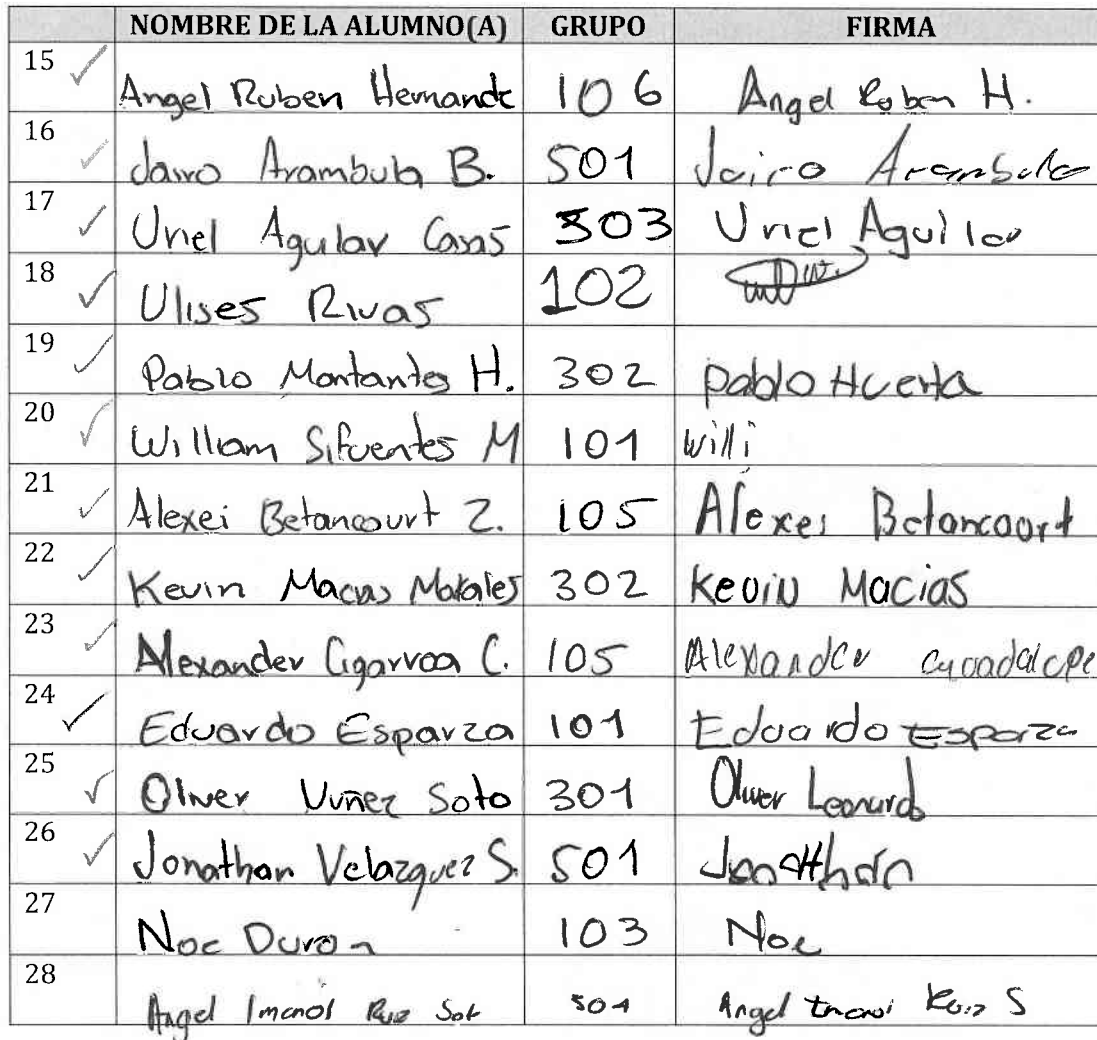 NOMBRE DE LA ALUMNO(A) GRUPO FIRMA
15 ✓ Angel Ruben Hernande 106 Angel Ruben H.
16 ✓ Jairo Arambula B. 501 Jairo Arambula
17 ✓ Uriel Aguilar Casas 303 Uriel Aguilar
18 ✓ Ulises Rivas 102
19 ✓ Pablo Montantes H. 302 Pablo Huerta
20 ✓ William Sifuentes M 101 Willi
21 ✓ Alexei Betancourt Z. 105 Alexei Betancourt
22 ✓ Kevin Macias Morales 302 Kevin Macias
23 ✓ Alexander Cigarroa C. 105 Alexander
24 ✓ Eduardo Esparza 101 Eduardo Esparza
25 ✓ Oliver Nuñez Soto 301 Oliver Leonardo
26 ✓ Jonathan Velazquez S. 501 Jonatthan
27 Noe Duron 103 Noe
28 Angel Imanol Ruiz Sot 501 Angel Ruiz S